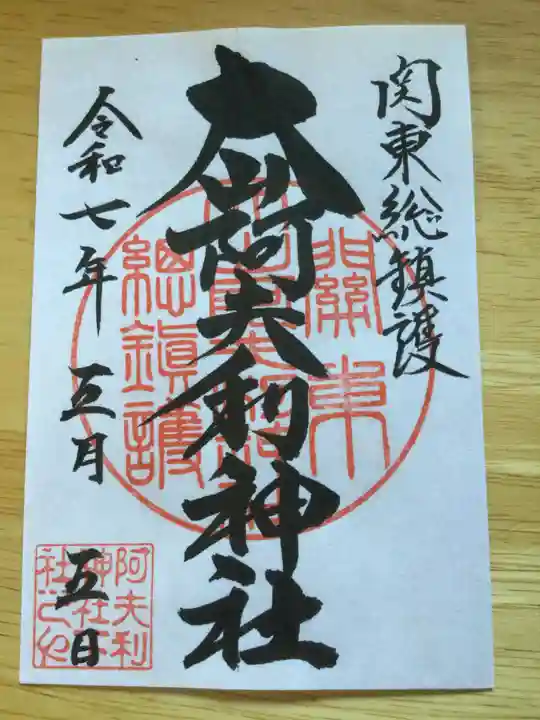 関東総鎮護
大山阿夫利神社
令和七年 五月
五日
關東
總鎮護
阿夫利
神社下